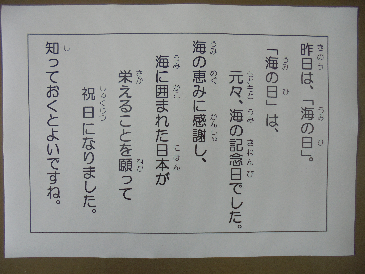 昨日は、「海の日」。
「海の日」は、
元々、海の記念日でした。
海の恵みに感謝し、
海に囲まれた日本が
栄えることを願って
祝日になりました。
知っておくとよいですね。